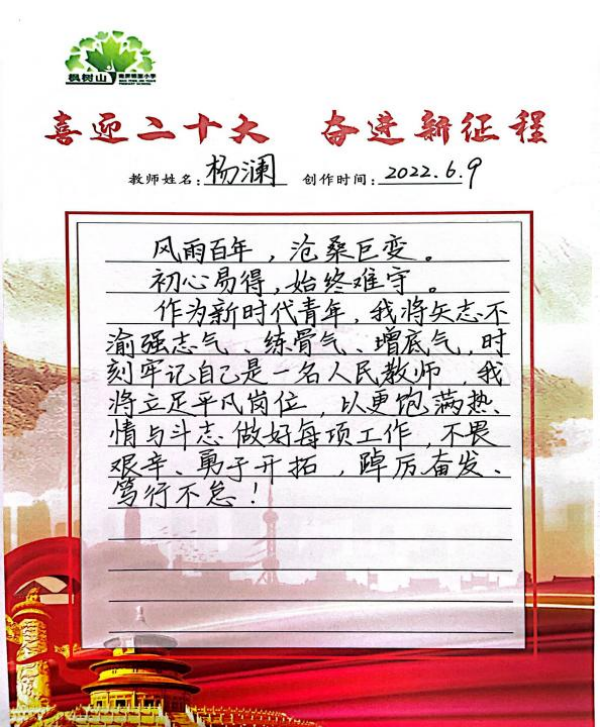 枫树山
喜迎二十大 奋进新征程
教师姓名: 杨澜 创作时间: 2022.6.9
风雨百年，沧桑巨变。
初心易得，始终难守。
作为新时代青年，我将矢志不
渝强志气、练骨气、增底气，时
刻牢记自己是一名人民教师，我
将立足平凡岗位，以更饱满热、
情与斗志做好每项工作，不畏
艰辛、勇于开拓，踔厉奋发、
笃行不怠！